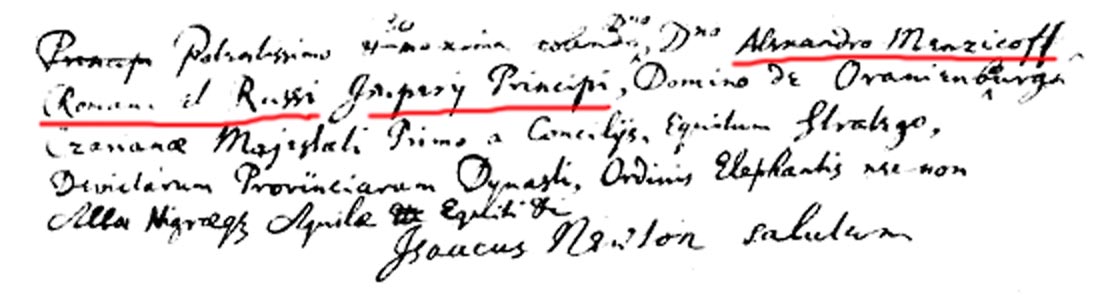 Potentissimo maxime colendo, Dno Alexandro Menzicoff
Romani et Russi Imperij Principi, Domino de Oranienburgh
Czarianæ Majestati Primo a Concilijs, Equitum Stratego,
Devictarum Provinciarum Dynasti, Ordinis Elephantis nec non
Albæ Nigræq; Aquilæ Equiti &c
Isaacus Newton salutem